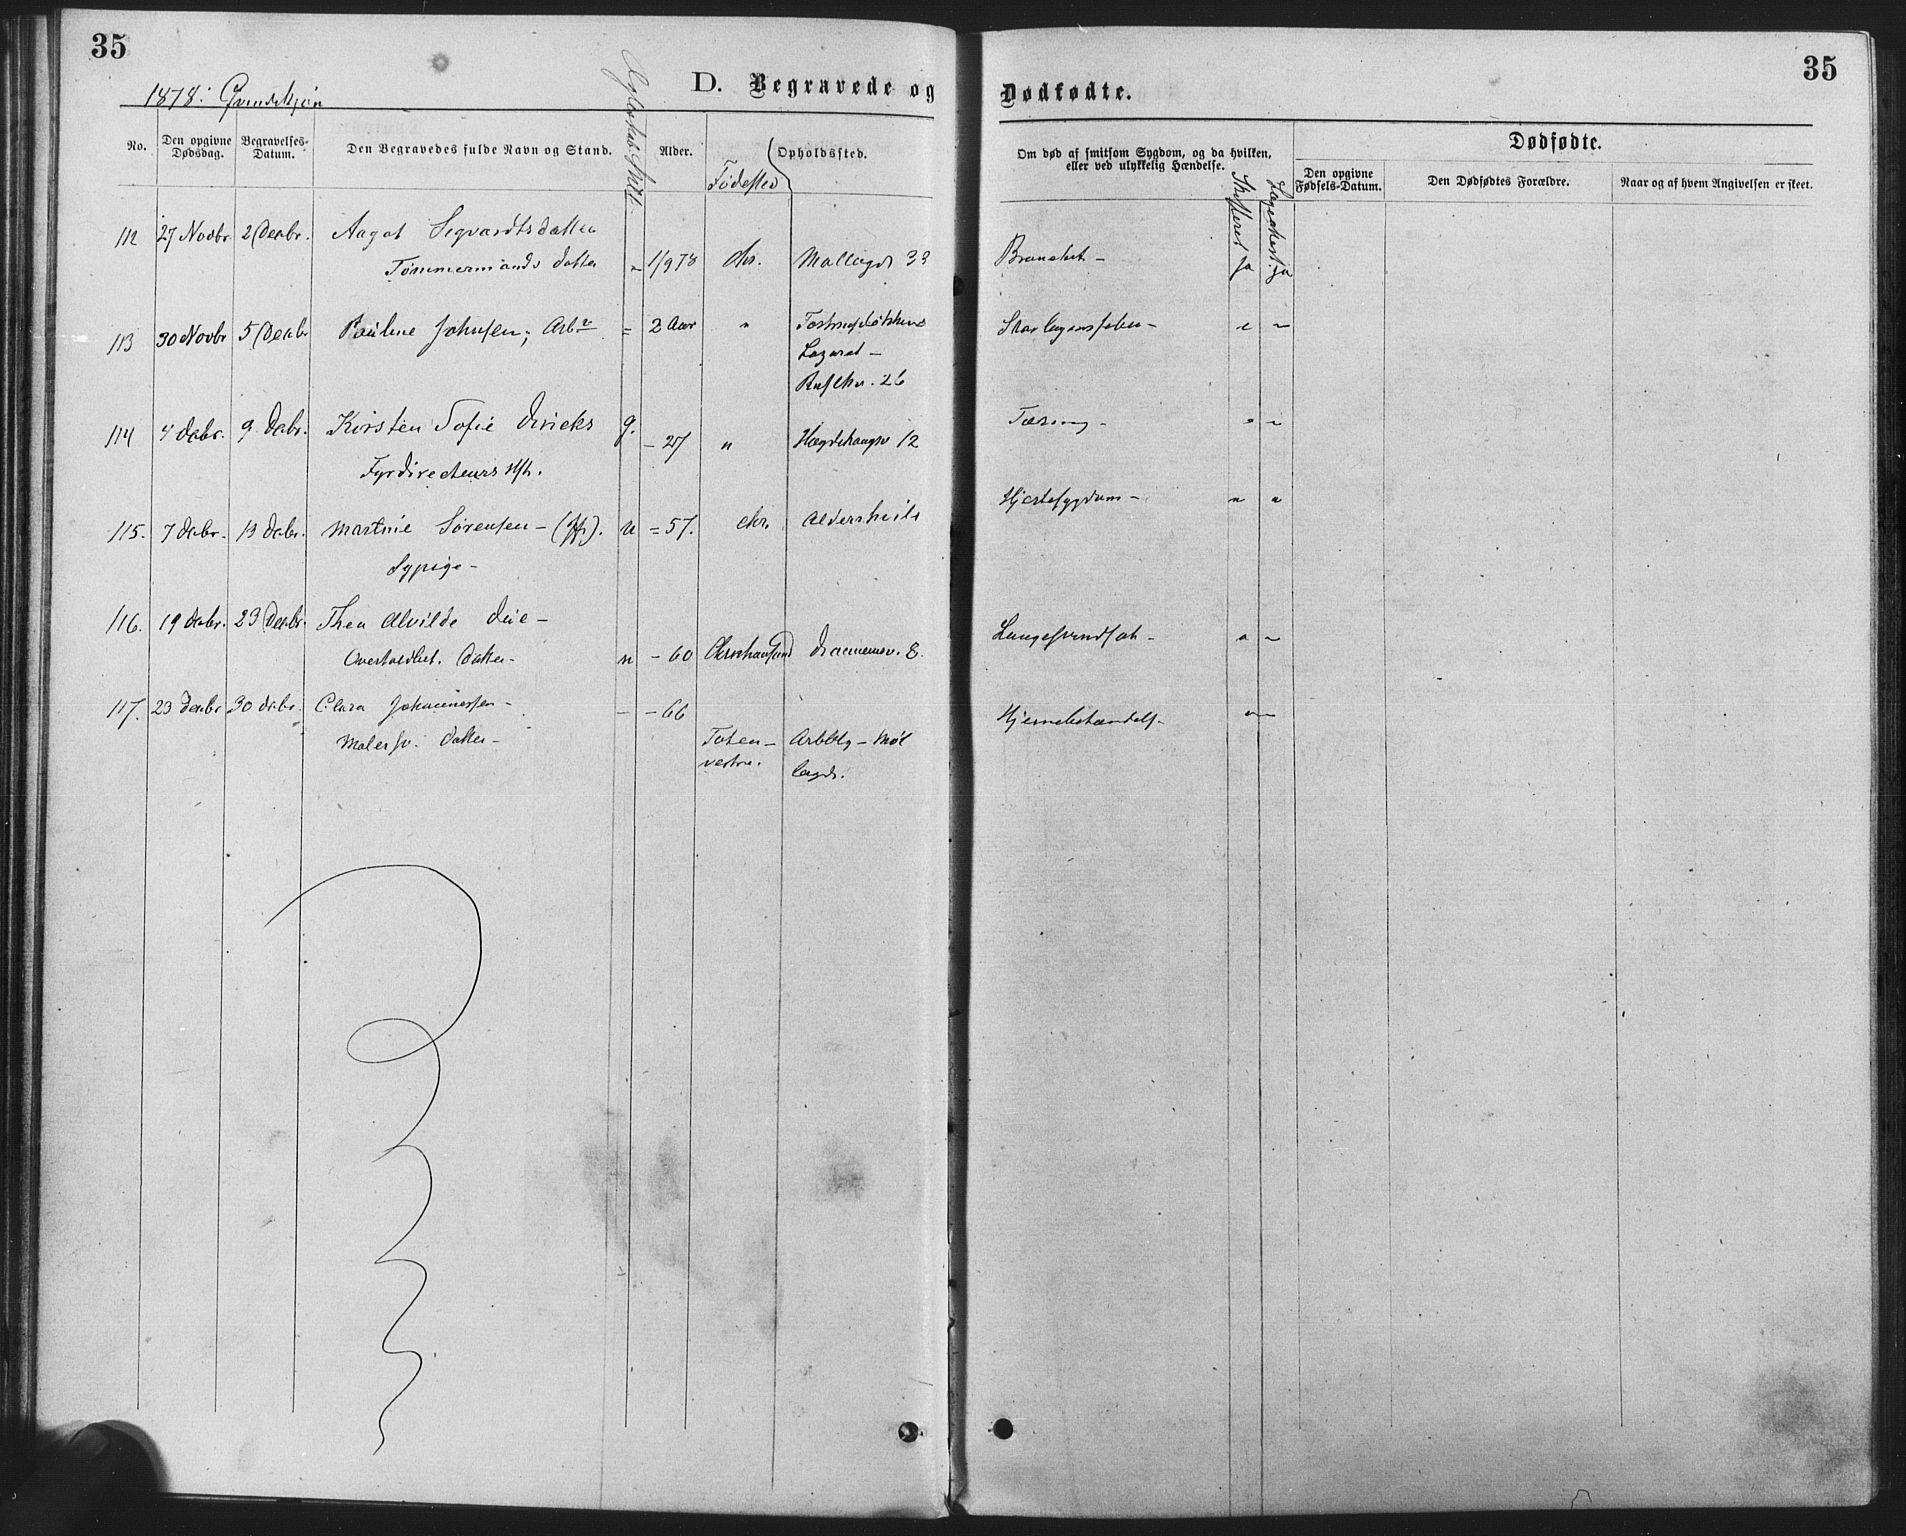 35
35
1878. Qvindekjøn
D. Begravede og Dødfødte.
No.
Den opgivne Dødsdag.
Begravelses-Datum.
Den Begravedes fulde Navn og Stand.
Alder.
Fødested
Opholdssted.
Om død af smitsom Sygdom, og da hvilken,
eller ved ulykkelig Hændelse.
Skifteret
Lægeattest
Dødfødte.
Den opgivne Fødsels-Datum.
Den Dødfødtes Forældre.
Naar og af hvem Angivelsen er skeet.
112 27 Novbr. 2 Decbr. Aagot Sigvardtsdatter
Tømmermands datter 1/9 78 Chr. Møllegd 33 Bronchit - ja ja
113 30 Novbr 5 Decbr Pauline Johnsen; Arb = 2 Aar "
Lazaret -
26
Skarlagensfeber -
114 4 Decbr. 9 Decbr. Kirsten Sofie Diricks g. - 27 " Hægdehaugsv 12 Tæring -
Fyrdirecteurs
115. 7 Decbr. 13 Decbr. Martine Sørensen - u = 57. Chr. Aldershvile Hjertesygdom - " "
Sypige -
116. 19 Decbr. 23 Decbr. Thea Alvilde -
Overtoldbet. Datter - u - 60 Christiansund Drammensv. 8. Lungesvindsot -
117. 23 Decbr 30 Decbr. Clara Johannessen -
Malersv. Datter - - - 66
Toten -
vestre.
Møl
lagd.
Hjernebetændels -